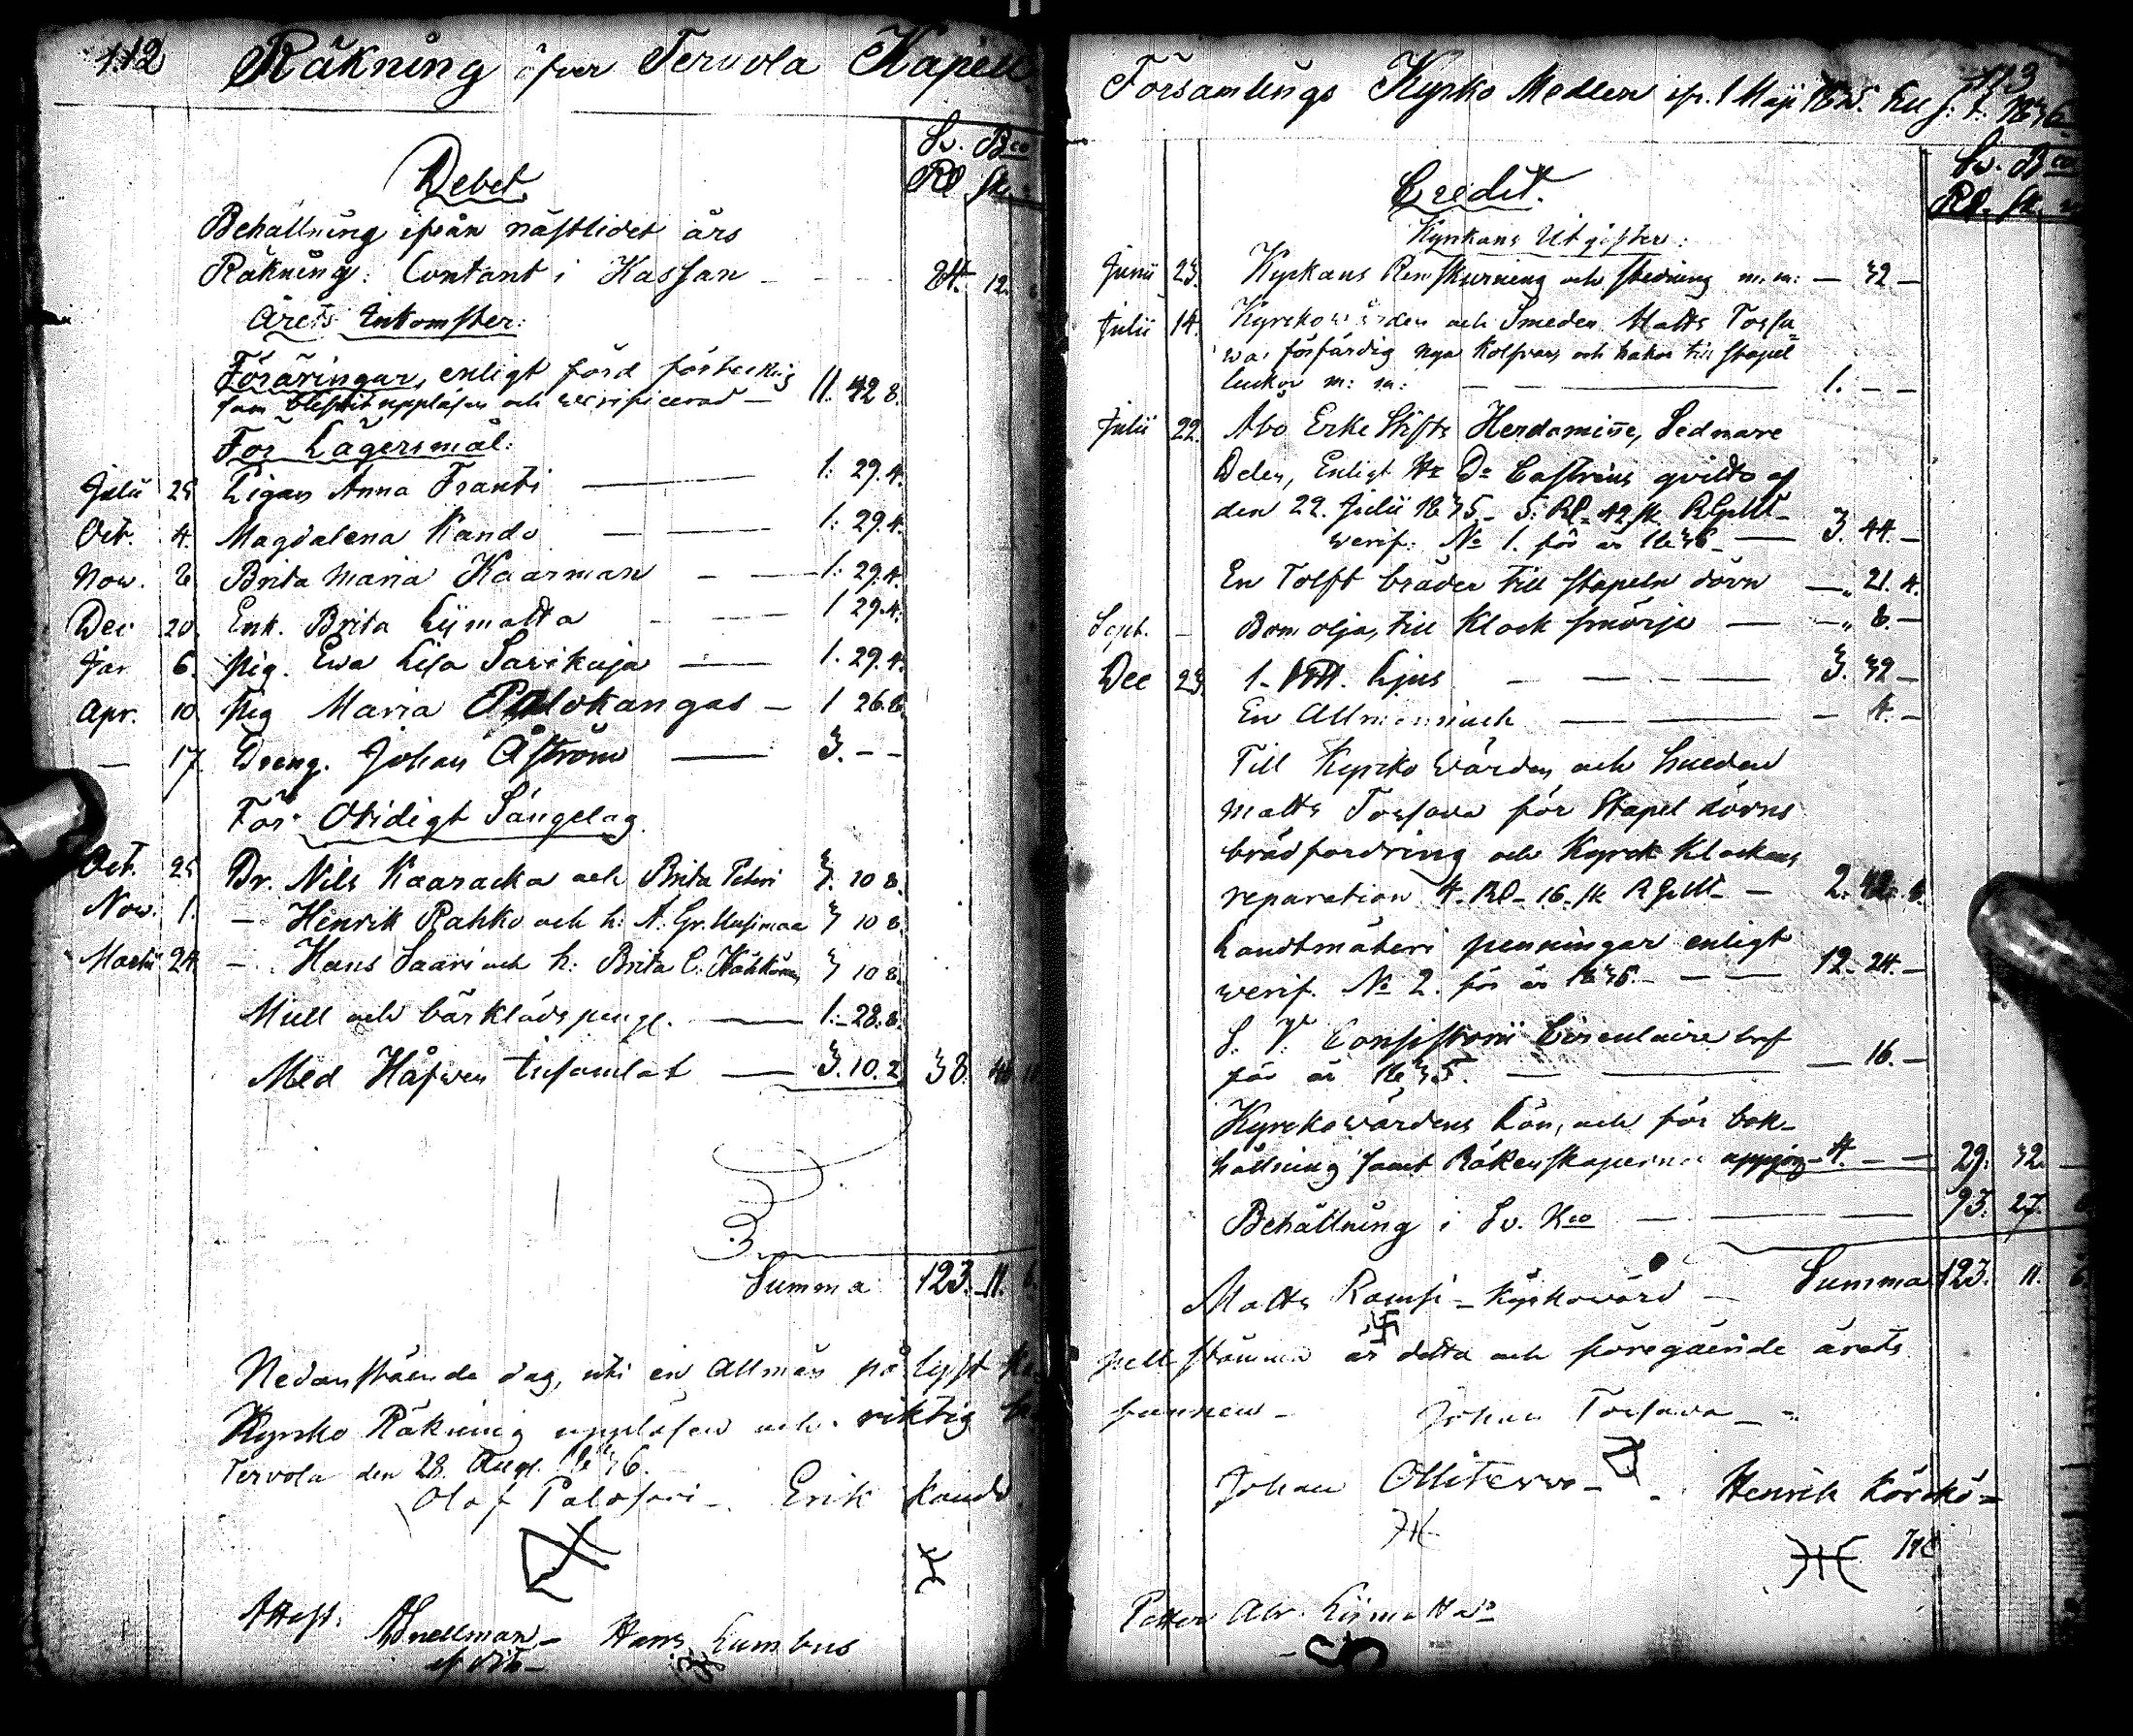 112
Räkning öfver Tervola Kapell
Sv. Bco
Debet.
Rd. sk.
Behållning ifrån nästlidet års
Räkning: Contant i Kassan - 84. 12.
Årets Inkomster:
Föräringar, enligt förd förteckng
som blifvit uppläsen och verificerad — 11. 42 8.
För Lägersmål:
Julii 25 Pigan Anna Franti — 1: 29.4.
Oct. 4. Magdalena Kando — 1: 29.4.
Nov. 8 Brita Maria Kaarman — 1: 29.4.
Dec 20. Enk. Brita Lijmatta — 1 29.4.
Jar 6. Pig. Ewa Lisa Sarikuja — 1. 29.4.
Apr. 10. Pig Maria Palokangas — 1 26.8.
— 17. Dreng. Johan Åström — 3. - -
För Otidigt Sängelag.
Oct. 25 Dr. Nils Kaaracka och Brita Peteri 3. 10 8.
Nov. 1. — Henrik Rahko och h: A: Gr. Uusimaa 3 10 8.
Martii 24 — Hans Saari och h: Brita C. 3 10 8.
Mull och bårklädspengr. — 1. 28. 8.
Med Håfven insamlat — 3. 10. 2 38.
Summa 123. 11. 6.
Nedanstående dag, uti en Allmän pålyst Ka-
Kyrko Räkning uppläsen och riktig be-
Tervola den 28. Aug. 1836.
Olof Palosari - Erik Kando
Attest. Snellman - Hans Lumbus
113
Församlings Kyrko Medlen ifr. 1 Maji 1835. till s. t. 1836.
Sv. Bco
Credit.
Rd. sk.
Kyrkans Utgifter:
Junii 23. Kyrkans Renskurning och stedning m. m: — 32 —
Julii 14. Kyrckovärden och Smeden Matts Tossa-
va förfärdig nya Kolfvar och hakor till stapel
luckor m: m: — 1. - -
Julii 22. Åbo Erke Stifts Herdaminne, Sednare
Delen, Enligt Hr Dr Castrens qvitto af
den 22. Julii 1835 - 5. Rd. 42 sk RGM -
verif: No 1. för år 1836 — 3. 44. —
En Tolft bräder till stapeln dörn — 21. 4.
Sept. — Bomolja, till Klock smörja — 8. —
Dec 23 1. Ljus — 3. 32 —
En Allmannach — 4. —
Till Kyrckovärden och Smeden
Matts Tossava för Stapel dörns
brädfordring och Kyrck Klockans
reparation 4. Rd. 16. sk RGM — 2. 42. 8.
Landtmäteri penningar enligt
verif. No 2. för år 1836. — 12. 24. —
S. V. Consistorii Circulaire bref
för år 1835. — 16. —
Kyrckovärdens Lön, och för bok-
hållning samt Räkenskapernas uppgör. 4. - - 29. 32. —
Behållning i Sv. Bco — 93. 27. 6.
Summa 123. 11. 6.
Matts Ramsi - Kyrkovärd
pell stämma är detta och föregående årets
funnen -
Johan Tossava
Johan Olliterwo -
Henrik Körckö
Petter Abr. Lijmatta